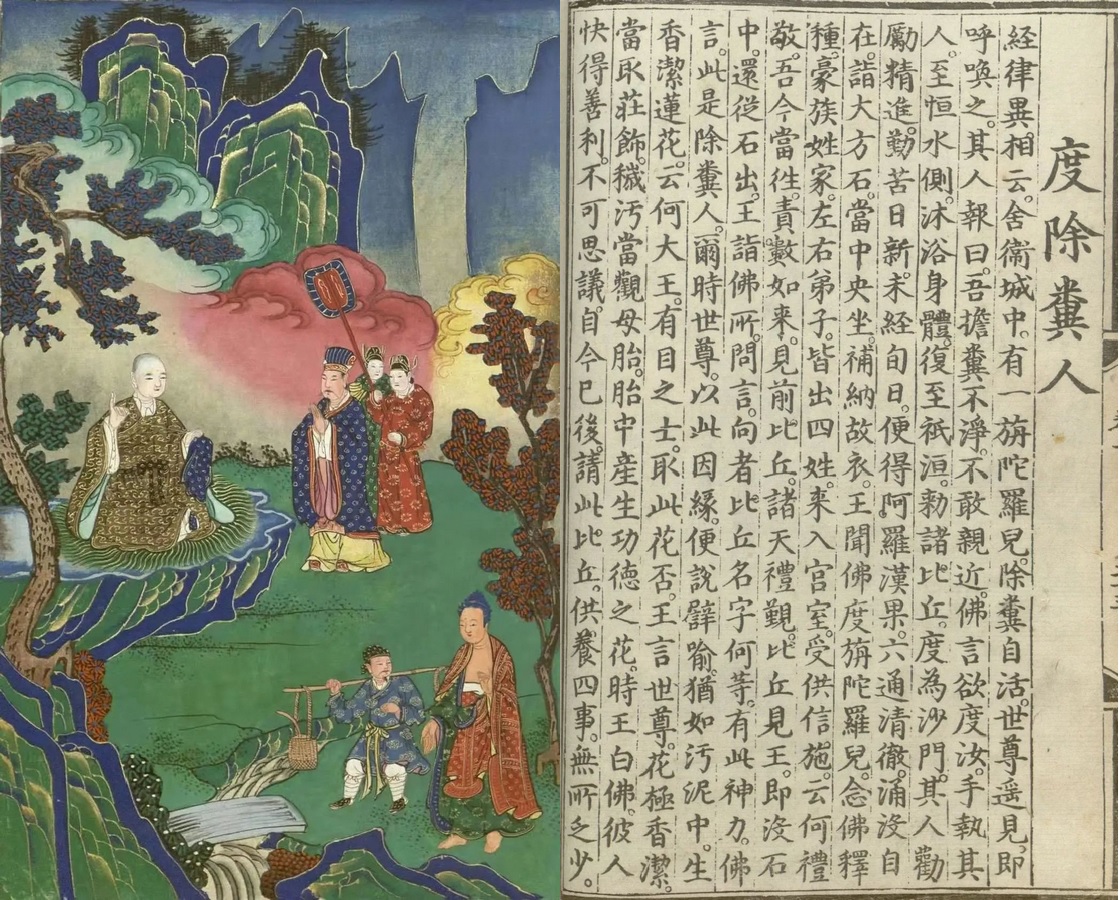 度除糞人
経律異相云。舍衛城中。有一旃陀羅兒。除糞自活。世尊遥見。即
呼喚之。其人報曰。吾擔糞不淨。不敢親近。佛言欲度汝。手執其
人。至恒水側。沐浴身體。復至祇洹。勅諸比丘。度為沙門。其人勸
勵精進。勤苦日新。未經旬日。便得阿羅漢果。六通清徹。涌没自
在。詣大方石。當中央坐。補納故衣。王聞佛度旃陀羅兒。念佛釋
種。豪族姓家。左右弟子。皆出四姓。来入宫室。受供信施。云何禮
敬。吾今當徃。責數如来。見前比丘。諸天禮覲。比丘見王。即没石
中。還從石出。王詣佛所。問言。向者比丘名字何等。有此神力。佛
言。此是除糞人。爾時世尊。以此因緣。便說譬喻。猶如汚泥中。生
香潔蓮花。云何大王。有目之士。取此花否。王言世尊。花極香潔。
當取莊飾。穢汚當觀母胎。胎中産生功德之花。時王白佛。彼人
快得善利。不可思議。自今已後。請此比丘。供養四事。無所乏少。